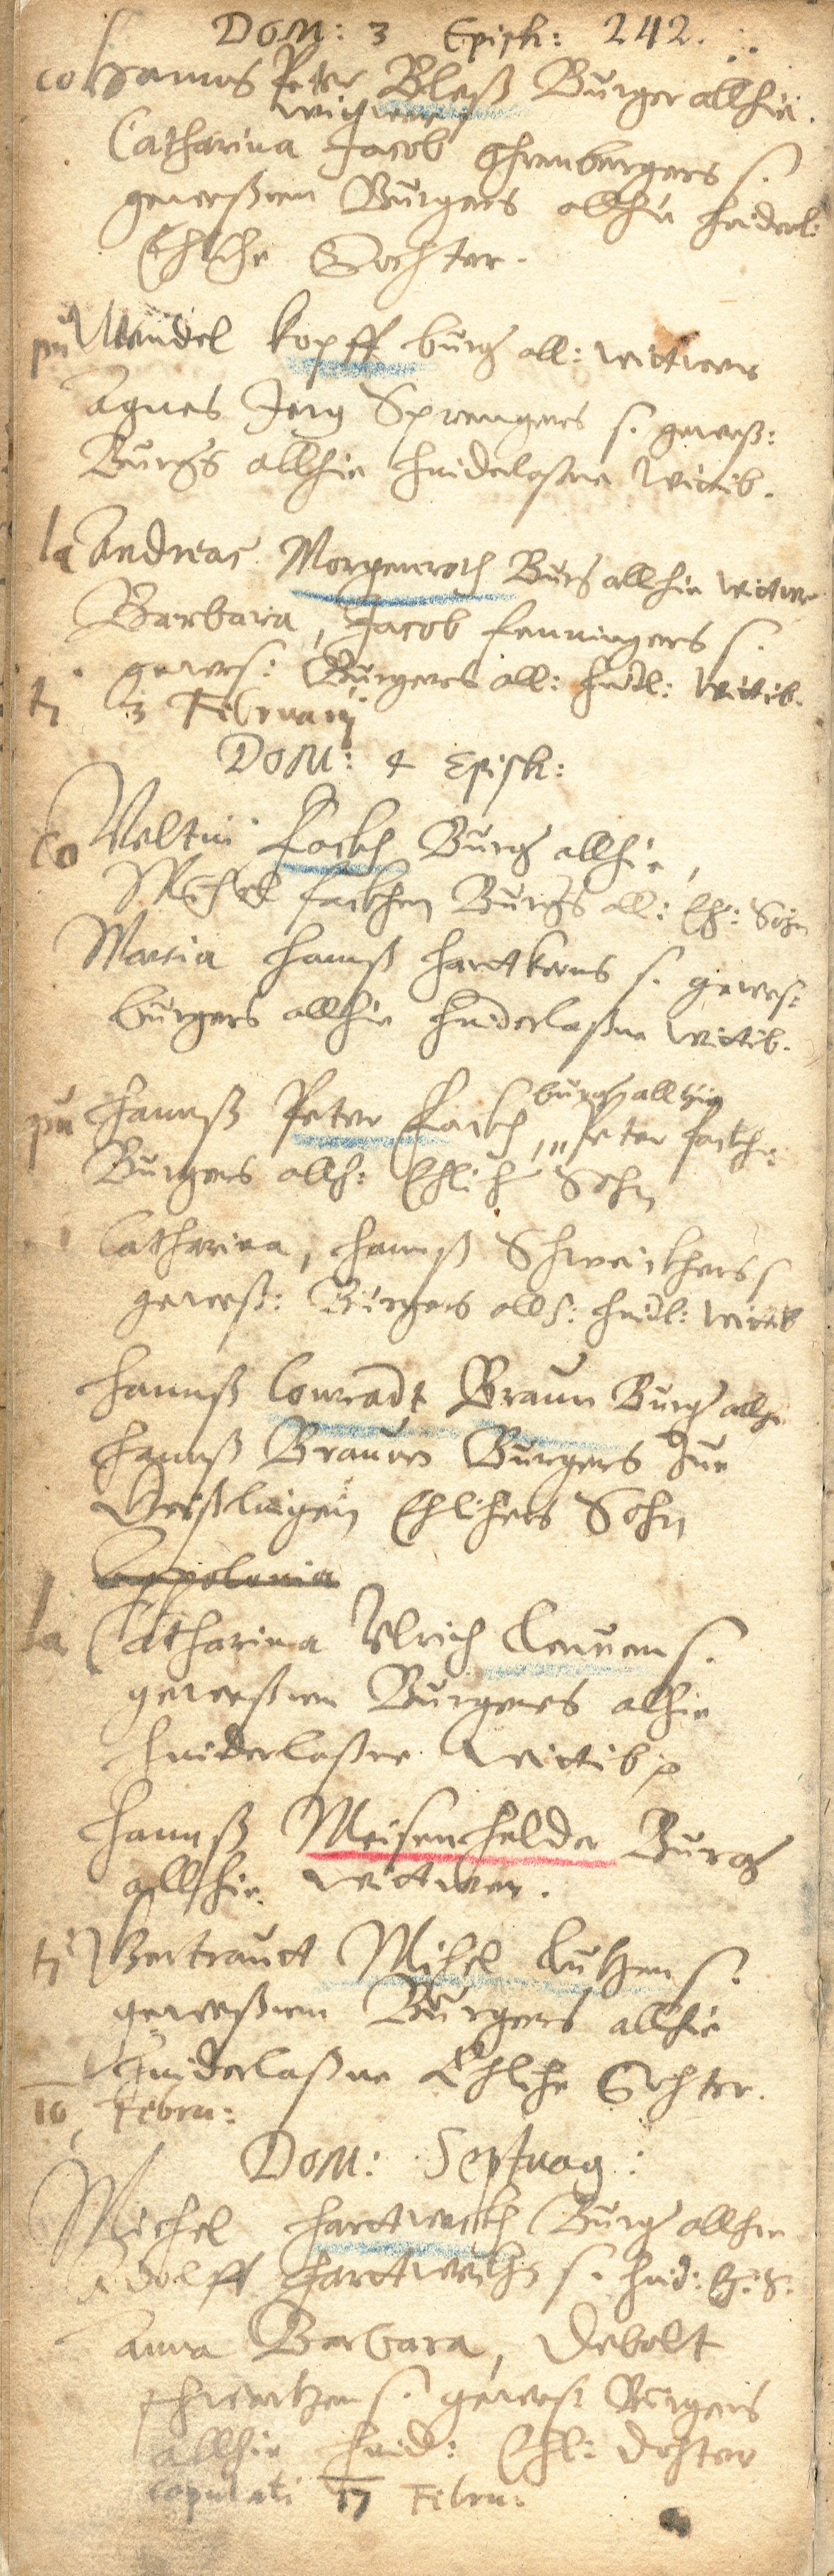 Dom: 3 Epiph: 242.
co Hannß Peter Bleß Burger allhie.
wittwer
Catharina Jacob Ehrenbergers s.
geweßnen Burgers allhie hinderl:
Ehliche Dochter.
pu Wendel Kopff burg all: wittwer
Agnes Jerg Sprengers s. geweß:
Burgers allhie hinderlaßne Wittib.
la Andreas Morgenroth Burg allhie wittwer
Barbara, Jacob Fenningers s.
gewes: Burgers all: hindl: Wittib.
ti 3 February
Dom: 4 Epiph:
co Veltin Fackh Burg allhie,
Michel Fackhen Burgers all: Eh: Sohn
Maria Hannß Hartkerns s. gewes:
burgers allhie hinderlaßne wittib.
burg allhie
pu Hannß Peter Fackh, Peter Fackhen
Burgers allh: Ehlich Sohn
Catharina, Hannß Schweickhers s
geweß: Burgers allh: hindl: wittib
Hannß Conradt Braun Burg allhie
Hannß Braunen Burgers zue
Ehlicher Sohn
Appolonia
la Catharina Ulrich s.
geweßnen Burgers alhie
hinderlaßne wittib
Hannß Meisenhelder Burg
allhie wittwer.
ti Gertraudt Michel Lutzen s.
geweßnen Burgers allhie
hinderlaßne Ehliche Dochter.
10 Febru:
Dom: Septuag:
Michel Hartweckh Burg allhie
Adolff Hartweckhs s. hind: Eh: S.
Anna Barbara, Debolt
Schwartzen s. gewes: Burgers
allhie hind: Ehl: dohter
copulati 17 Febru: